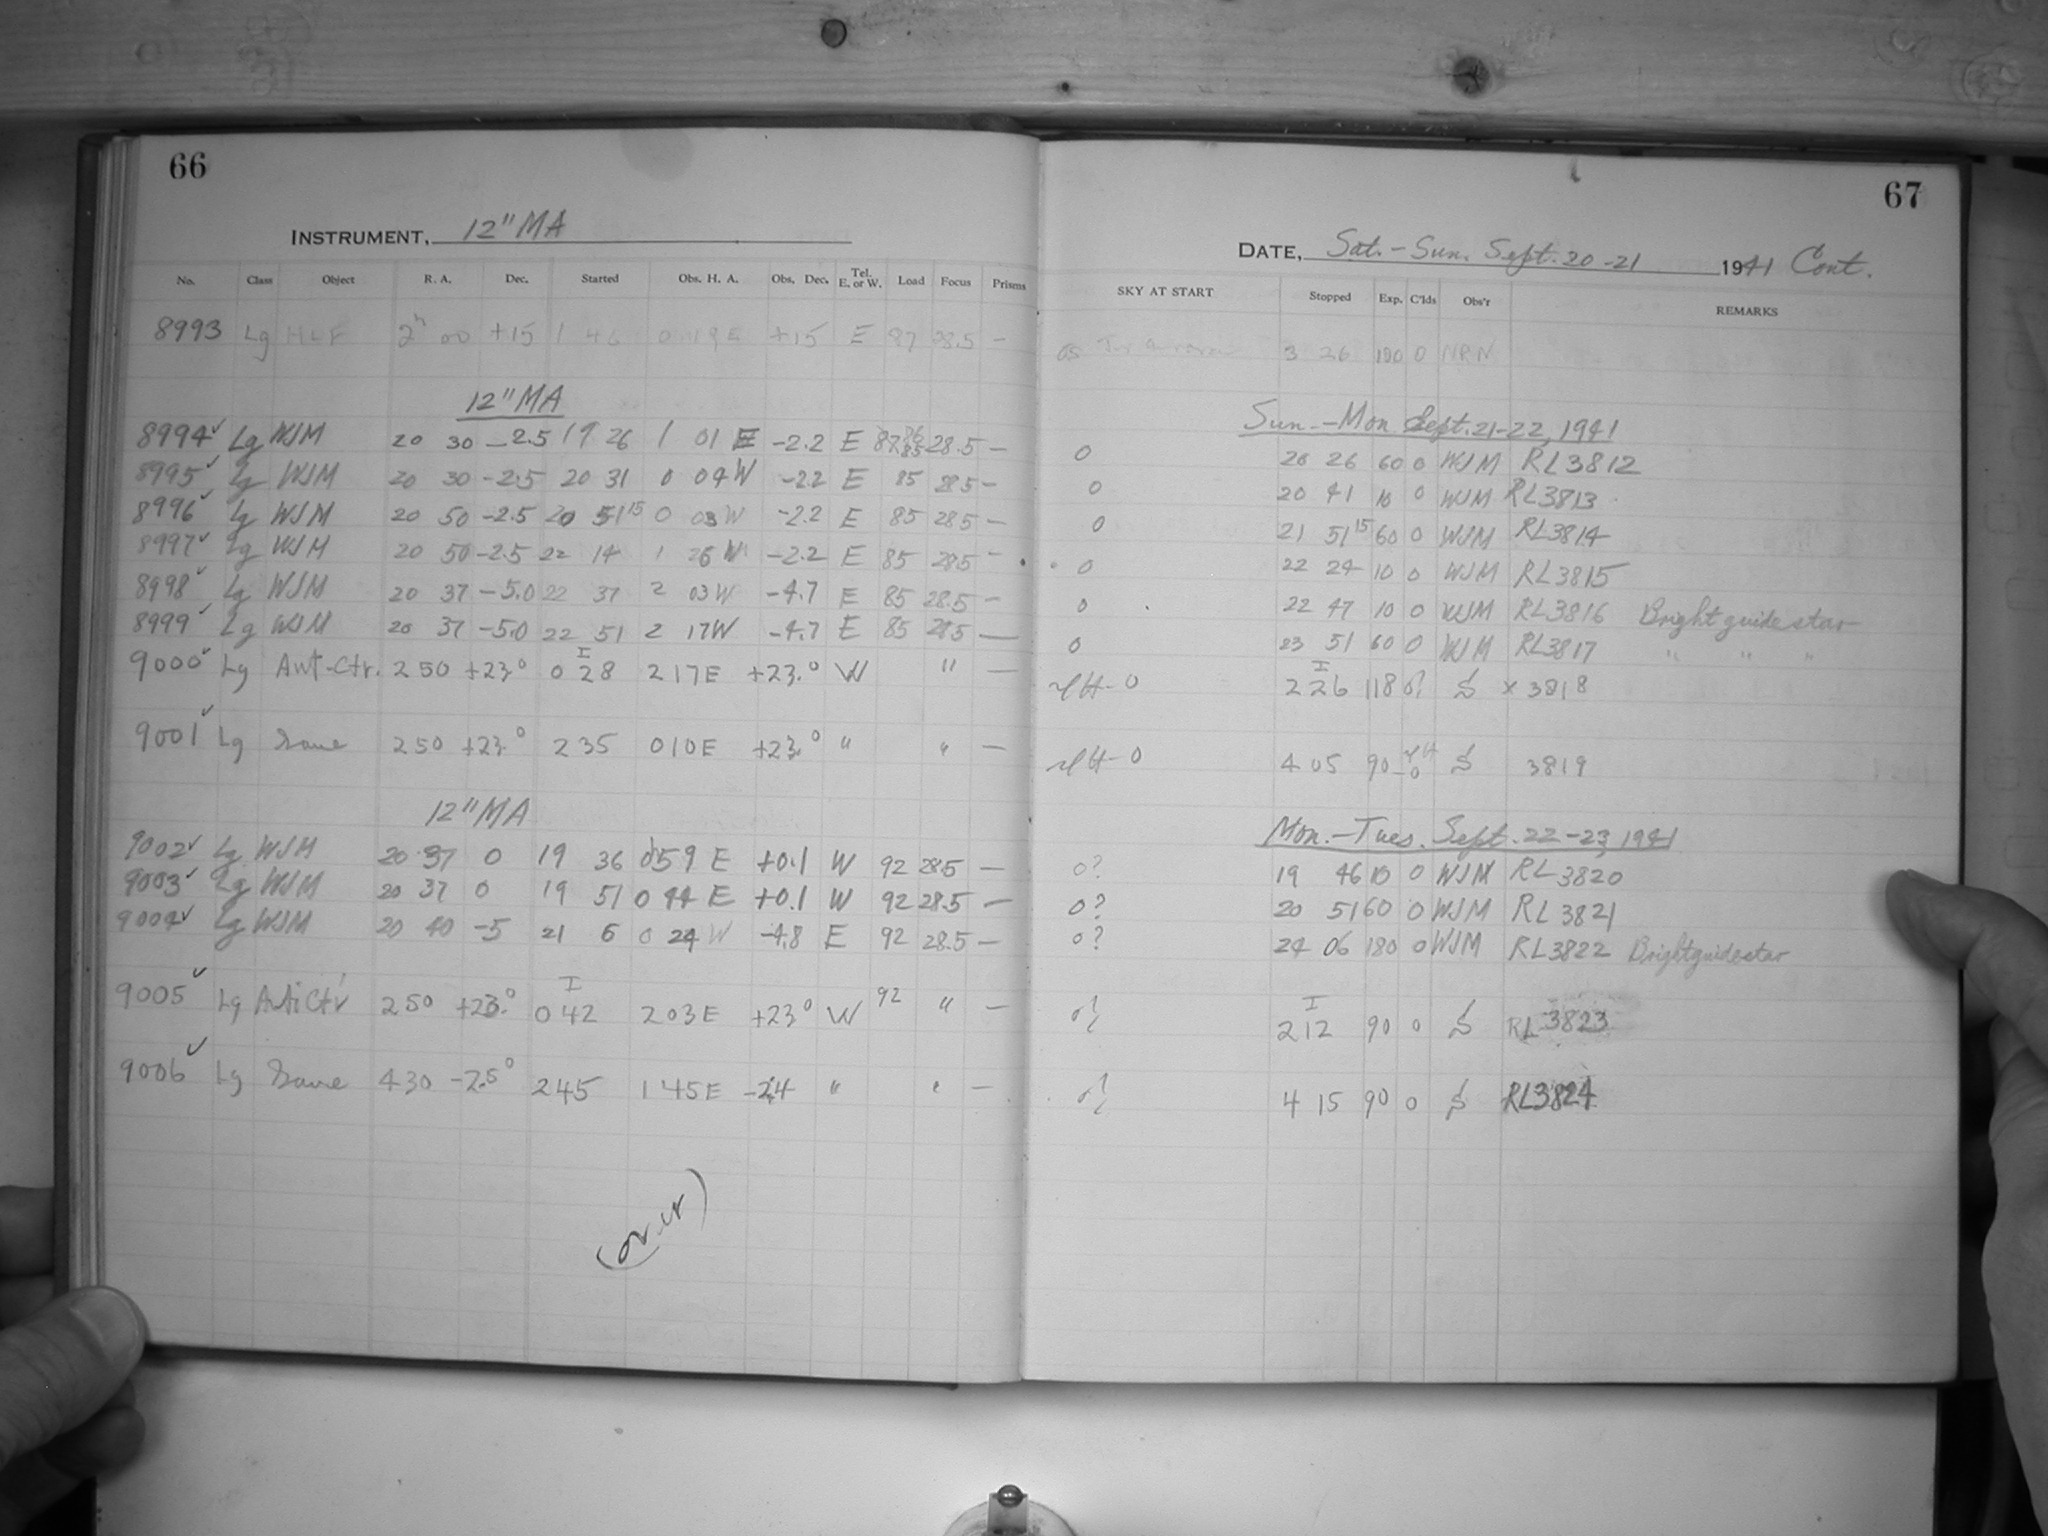 66
INSTRUMENT, 12" MA
No. Class Object R. A. Dec. Started Obs. H. A. Obs. Dec. Tel. E. or W. Load Focus Prisms
8993 Lg HLF 2h 00 +15 1 46 0 19 E +15 E 87 28.5 —
12" MA
8994✓ Lg WJM 20 30 -2.5 19 26 1 01 E -2.2 E 28.5 —
8995✓ Lg WJM 20 30 -2.5 20 31 0 04 W -2.2 E 85 28.5 —
8996✓ Lg WJM 20 50 -2.5 20 51 15 0 03 W -2.2 E 85 28.5 —
8997✓ Lg WJM 20 50 -2.5 22 14 1 26 W -2.2 E 85 28.5 —
8998✓ Lg WJM 20 37 -5.0 22 37 2 03 W -4.7 E 85 28.5 —
8999✓ Lg WJM 20 37 -5.0 22 51 2 17 W -4.7 E 85 28.5 —
9000✓ Lg Ant-Ctr. 2 50 +23.° I 0 28 2 17 E +23.° W " —
9001✓ Lg Same 2 50 +23.° 2 35 0 10 E +23.° " " —
12" MA
9002✓ Lg WJM 20 37 0 19 36 0 59 E +0.1 W 92 28.5 —
9003✓ Lg WJM 20 37 0 19 51 0 44 E +0.1 W 92 28.5 —
9004✓ Lg WJM 20 40 -5 21 6 0 24 W -4.8 E 92 28.5 —
9005✓ Lg Anti Ctr 2 50 +23.° I 0 42 2 03 E +23° W 92 " —
9006✓ Lg Same 4 30 -2.5° 2 45 1 45 E -2.4 " " —
(over)
67
DATE, Sat. - Sun. Sept. 20 - 21 1941 Cont.
SKY AT START Stopped Exp. C'lds Obs'r REMARKS
3 26 100 0 NRN
Sun. - Mon Sept. 21-22, 1941
0 20 26 60 0 WJM RL3812
0 20 41 10 0 WJM RL3813
0 21 51 15 60 0 WJM RL3814
0 22 24 10 0 WJM RL3815
0 22 47 10 0 WJM RL3816 Bright guide star
0 23 51 60 0 WJM RL3817 " " "
I 2 26 118 S x 3818
4 05 90 S 3819
Mon. - Tues. Sept. 22-23, 1941
0? 19 46 10 0 WJM RL 3820
0? 20 51 60 0 WJM RL 3821
0? 24 06 180 0 WJM RL3822 Bright guide star
0? I 2 12 90 0 S RL 3823
0? 4 15 90 0 S RL3824